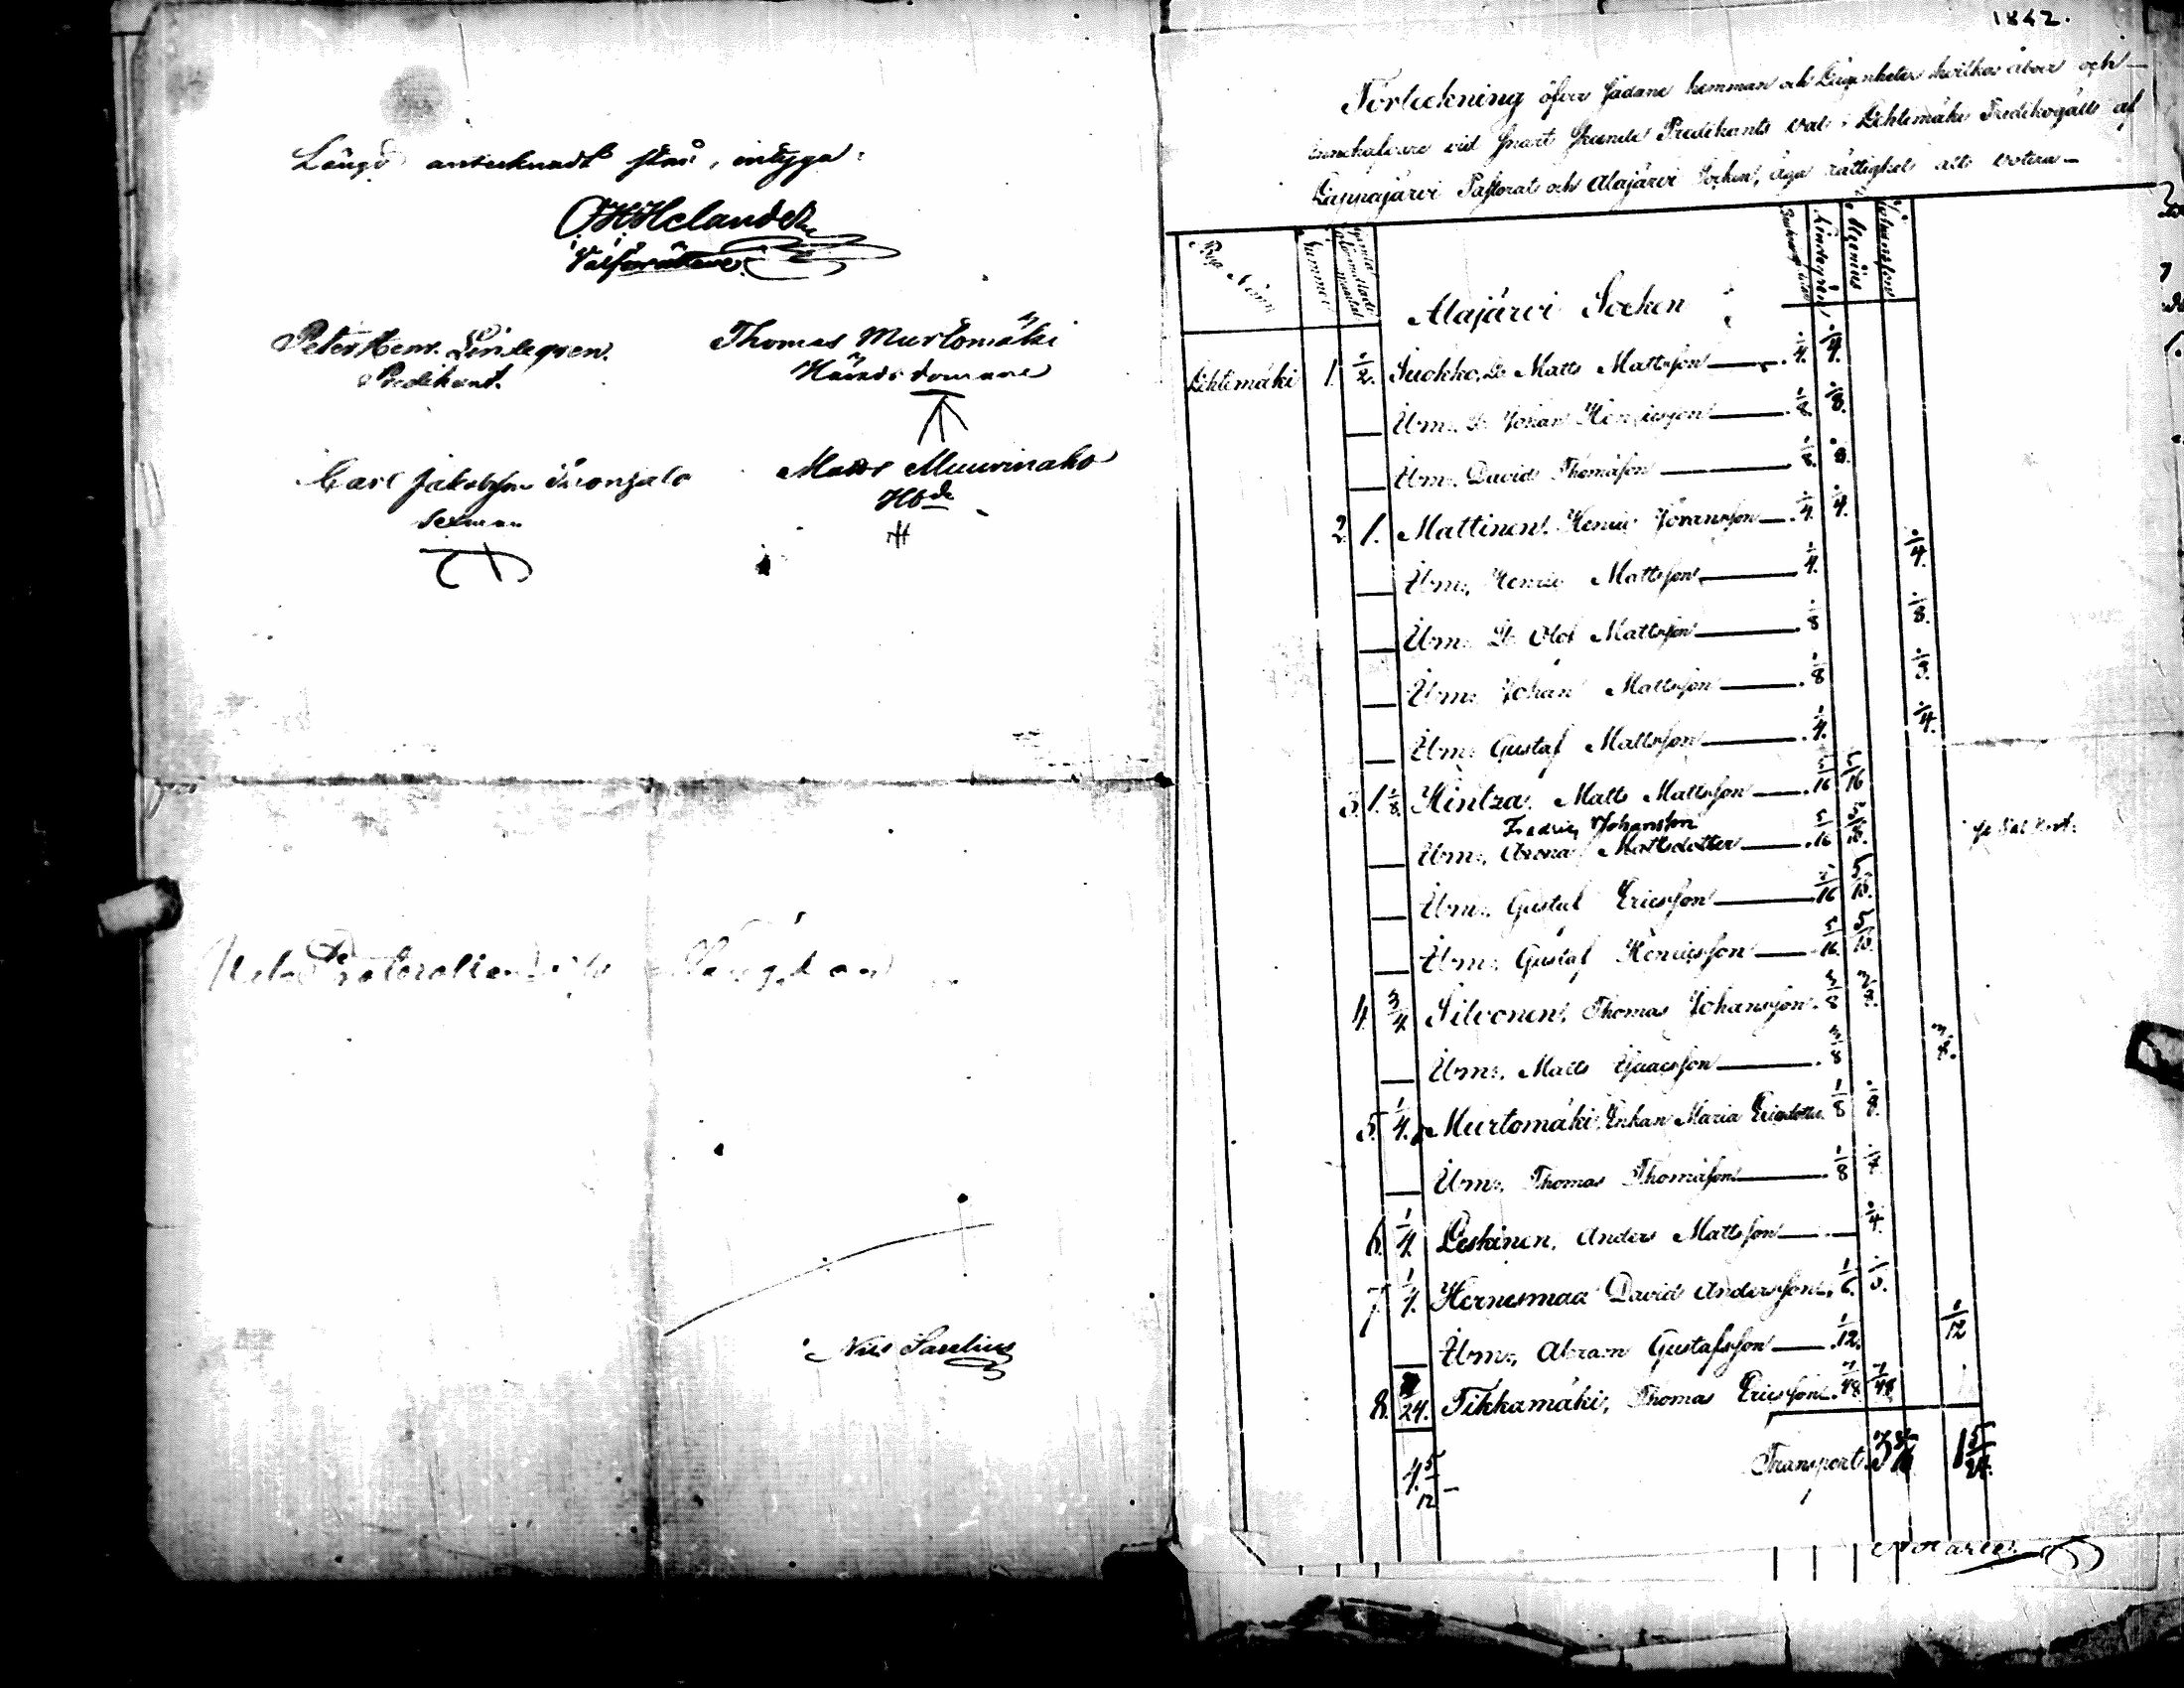 Längd antecknadt står, intyga:
O H Helander
Valförrättare
Peter Henr. Lindegren
Predikant.
Thomas Murtomäki
Häradsdomare
Carl Jakobsson
Sexman
Matts Muurinaho
Hbde
Nils
1842.
Förteckning öfver sådane hemman och Lägenheter hvilkas åboer och
innehafvare vid snart skeende Predikants val i Lehtimäki Predikogäll af
Lappajärvi Pastorat och Alajärvi Socken, äga rättighet att votera
Bys Namn
Nummer
Mantal
Lindegren
Alcenius
Johansson
Alajärvi Socken
Lehtimäki 1. 1/2. Suokko, Matts Mattsson 1/4. 1/4.
Ibm. Johan Henricsson 1/8. 1/8.
Ibm. David Thomasson 1/8. 1/8.
2. 1. Mattinen. Henric Göransson 1/4. 1/4.
Ibm. Henric Mattsson 1/4. 1/4.
Ibm. Olof Mattsson 1/8 1/8.
Ibm. Johan Mattsson 1/8 1/8.
Ibm. Gustaf Mattsson 1/4. 1/4.
3. 1. 1/8 Hintza. Matts Mattsson 5/16 5/16
Fredric Johansson
Ibm. Mattsdotter 5/16 5/16.
Ibm. Gustaf Ericsson 5/16 5/16.
Ibm. Gustaf Henricsson 5/16. 5/16.
4. 3/4 Silvonen. Thomas Johansson 3/8 3/8.
Ibm. Matts Isaacsson 3/8 3/8.
5. 1/4. Murtomäki. Enkan Maria Ericsdotter 1/8 1/8.
Ibm. Thomas Thomasson 1/8
6. 1/4. Leskinen. Anders Mattsson 1/4.
7. 1/4. Hernesmaa David Andersson 1/6. 1/6.
Ibm. Abram Gustafsson 1/12. 1/12
8. 7/24. Tikkamäki, Thomas Ericsson 7/48 7/48
4. 5/12 Transport 1 5/24.